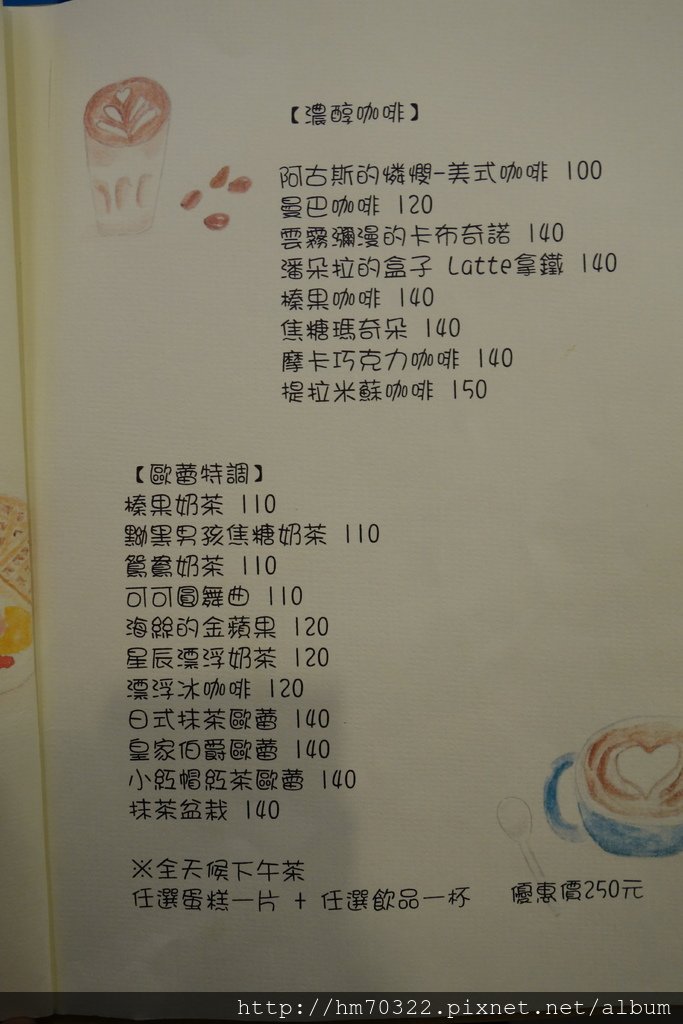 【濃醇咖啡】
阿古斯的憐憫-美式咖啡 100
曼巴咖啡 120
雲霧瀰漫的卡布奇諾 140
潘朵拉的盒子 Latte拿鐵 140
榛果咖啡 140
焦糖瑪奇朵 140
摩卡巧克力咖啡 140
提拉米蘇咖啡 150
【歐蕾特調】
榛果奶茶 110
黝黑男孩焦糖奶茶 110
鴛鴦奶茶 110
可可圓舞曲 110
海絲的金蘋果 120
星辰漂浮奶茶 120
漂浮冰咖啡 120
日式抹茶歐蕾 140
皇家伯爵歐蕾 140
小紅帽紅茶歐蕾 140
抹茶盆栽 140
※全天候下午茶
任選蛋糕一片 + 任選飲品一杯 優惠價250元
http://hm70322.pixnet.net/album